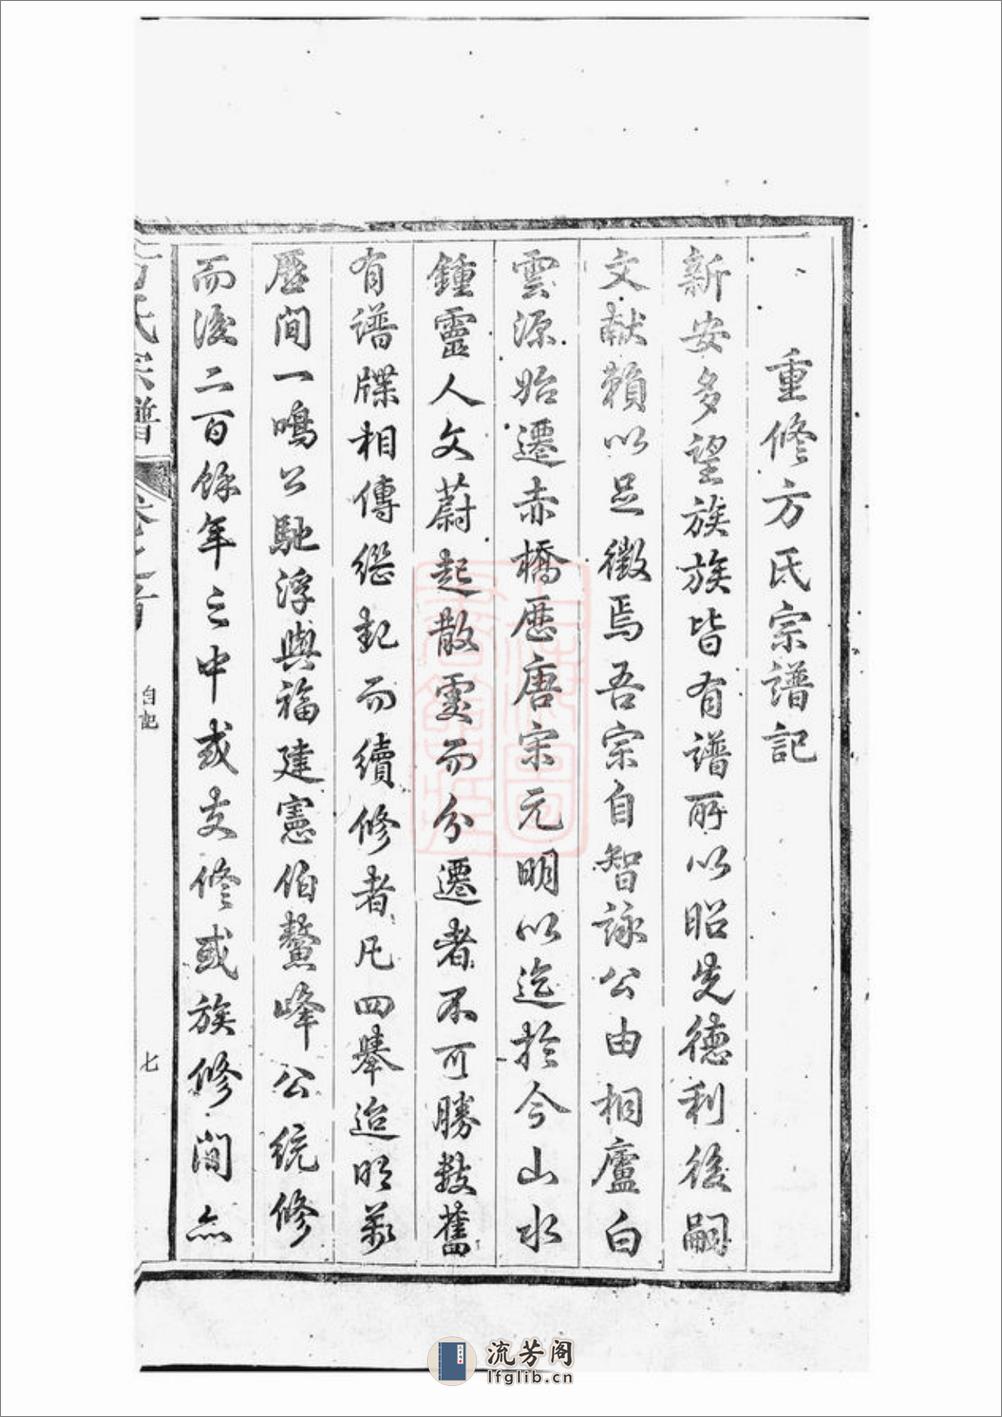 重修方氏宗譜記
新安多望族族皆有譜所以昭先德利後嗣
文献賴以足徵焉吾宗自智詠公由桐廬白
雲源始遷赤橋歷唐宗元明以迄於今山水
鍾靈人文蔚起散處而分遷者不可勝數舊
有譜牒相傳繼起而續修者凡四舉迨明萬
歷間一鳴公馳浮與福建憲伯鰲峰公統修
而後二百餘年之中或支修或族修間亦
方氏宗譜
卷之首
自記
七
流芳阁
lfglib.cn